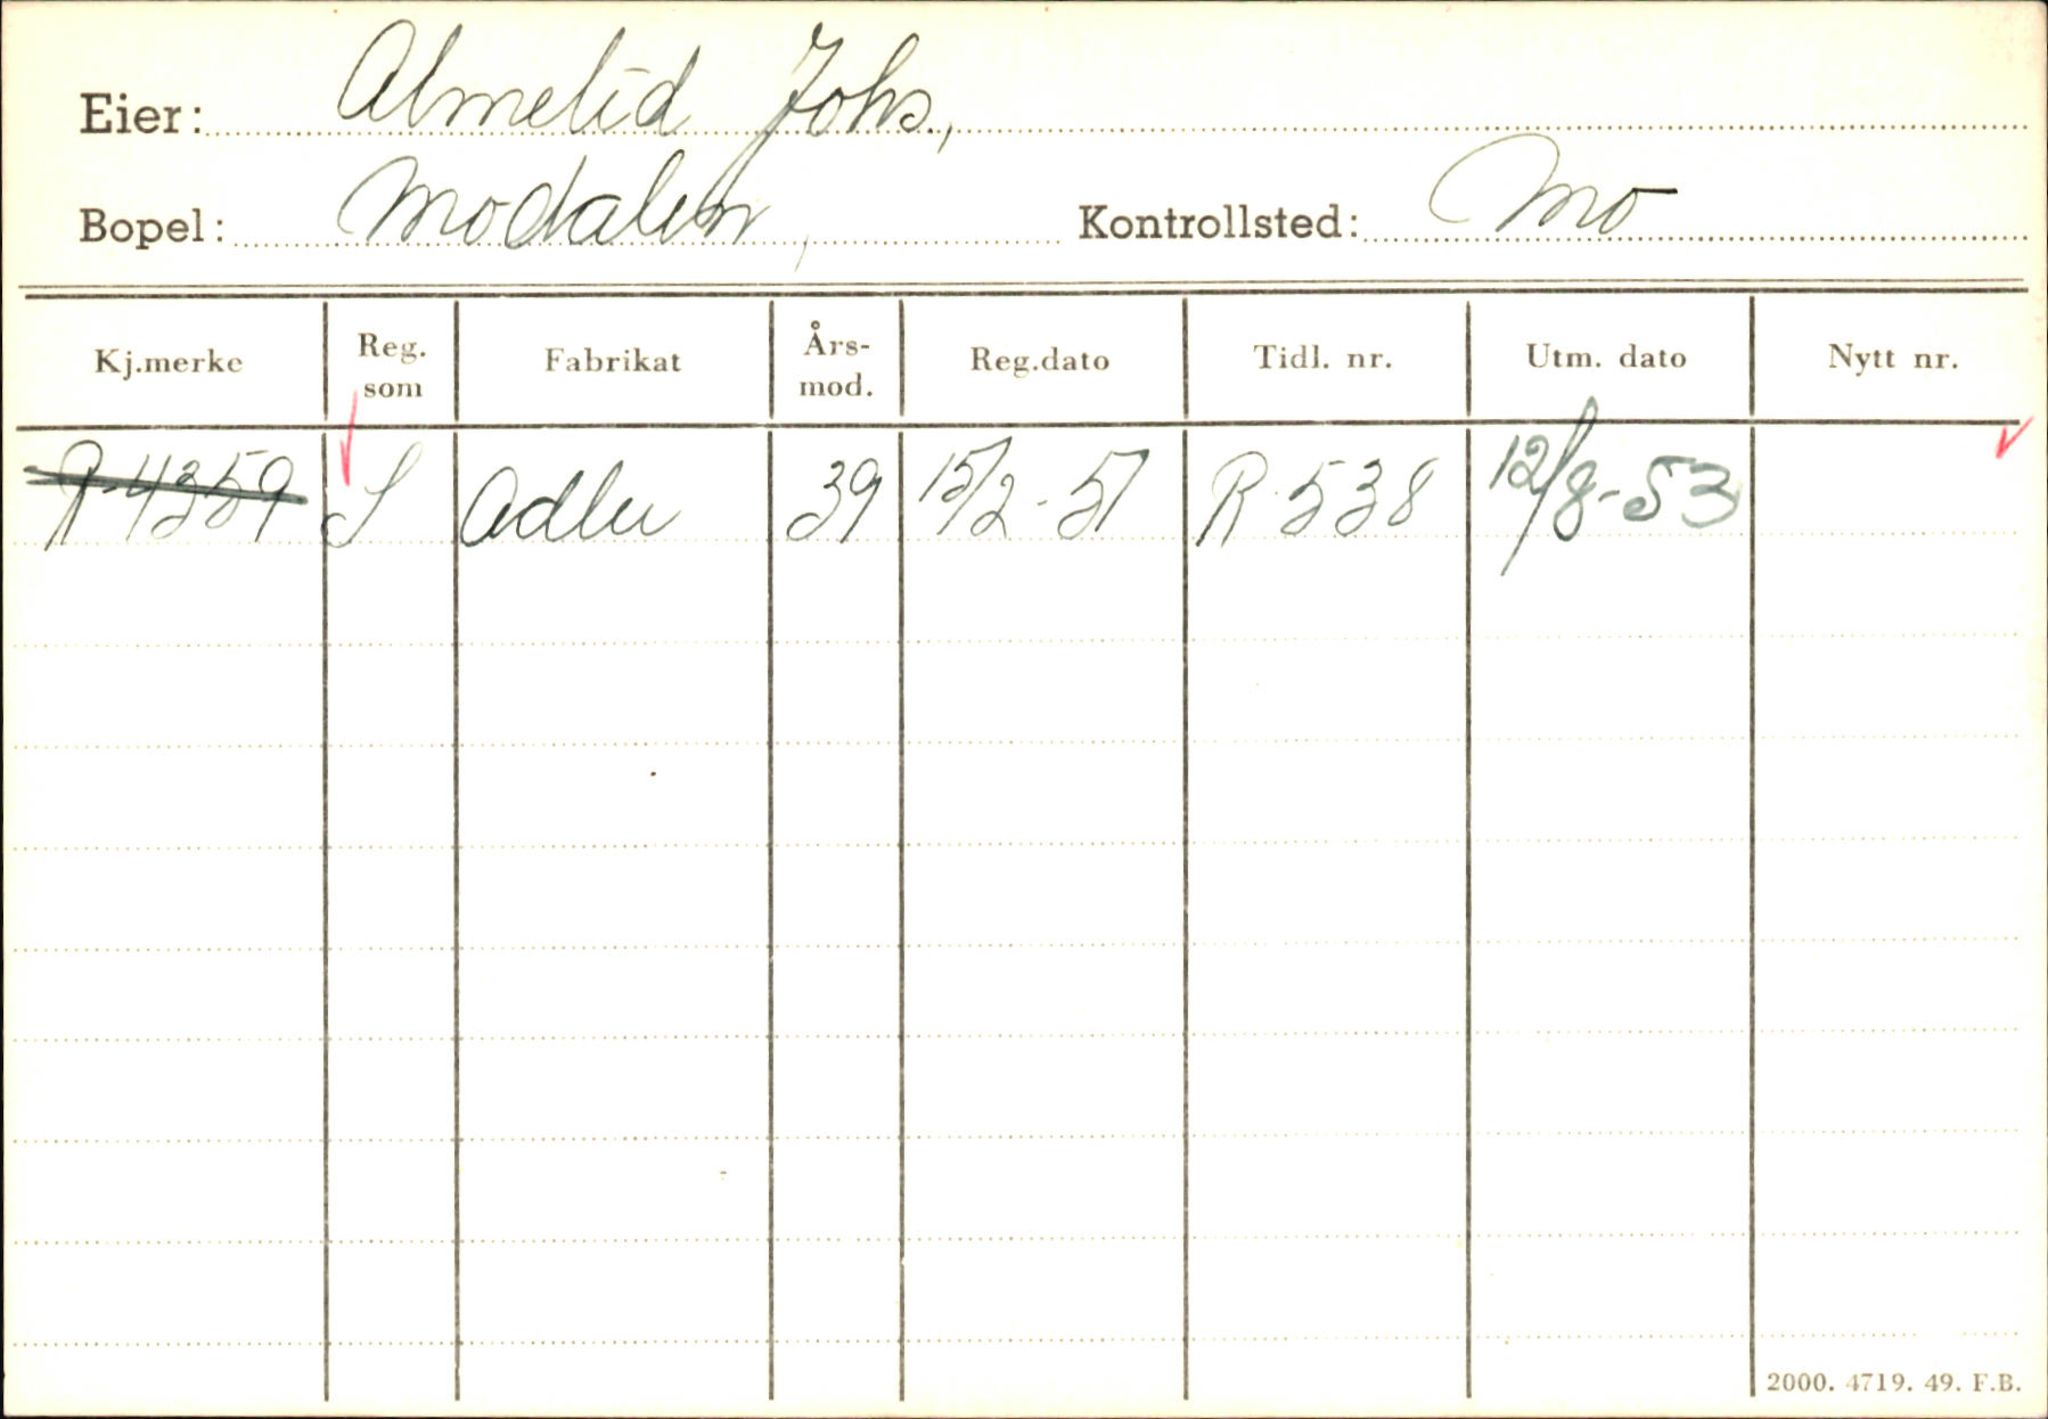 Eier: Almelid Johs.,
Bopel: Modalen, Kontrollsted: Mo
Kj.merke Reg. som Fabrikat Års-mod. Reg.dato Tidl. nr. Utm. dato Nytt nr.
R-4359 S Adler 39 15/2-51 R-538 12/8-53
2000. 4719. 49. F.B.